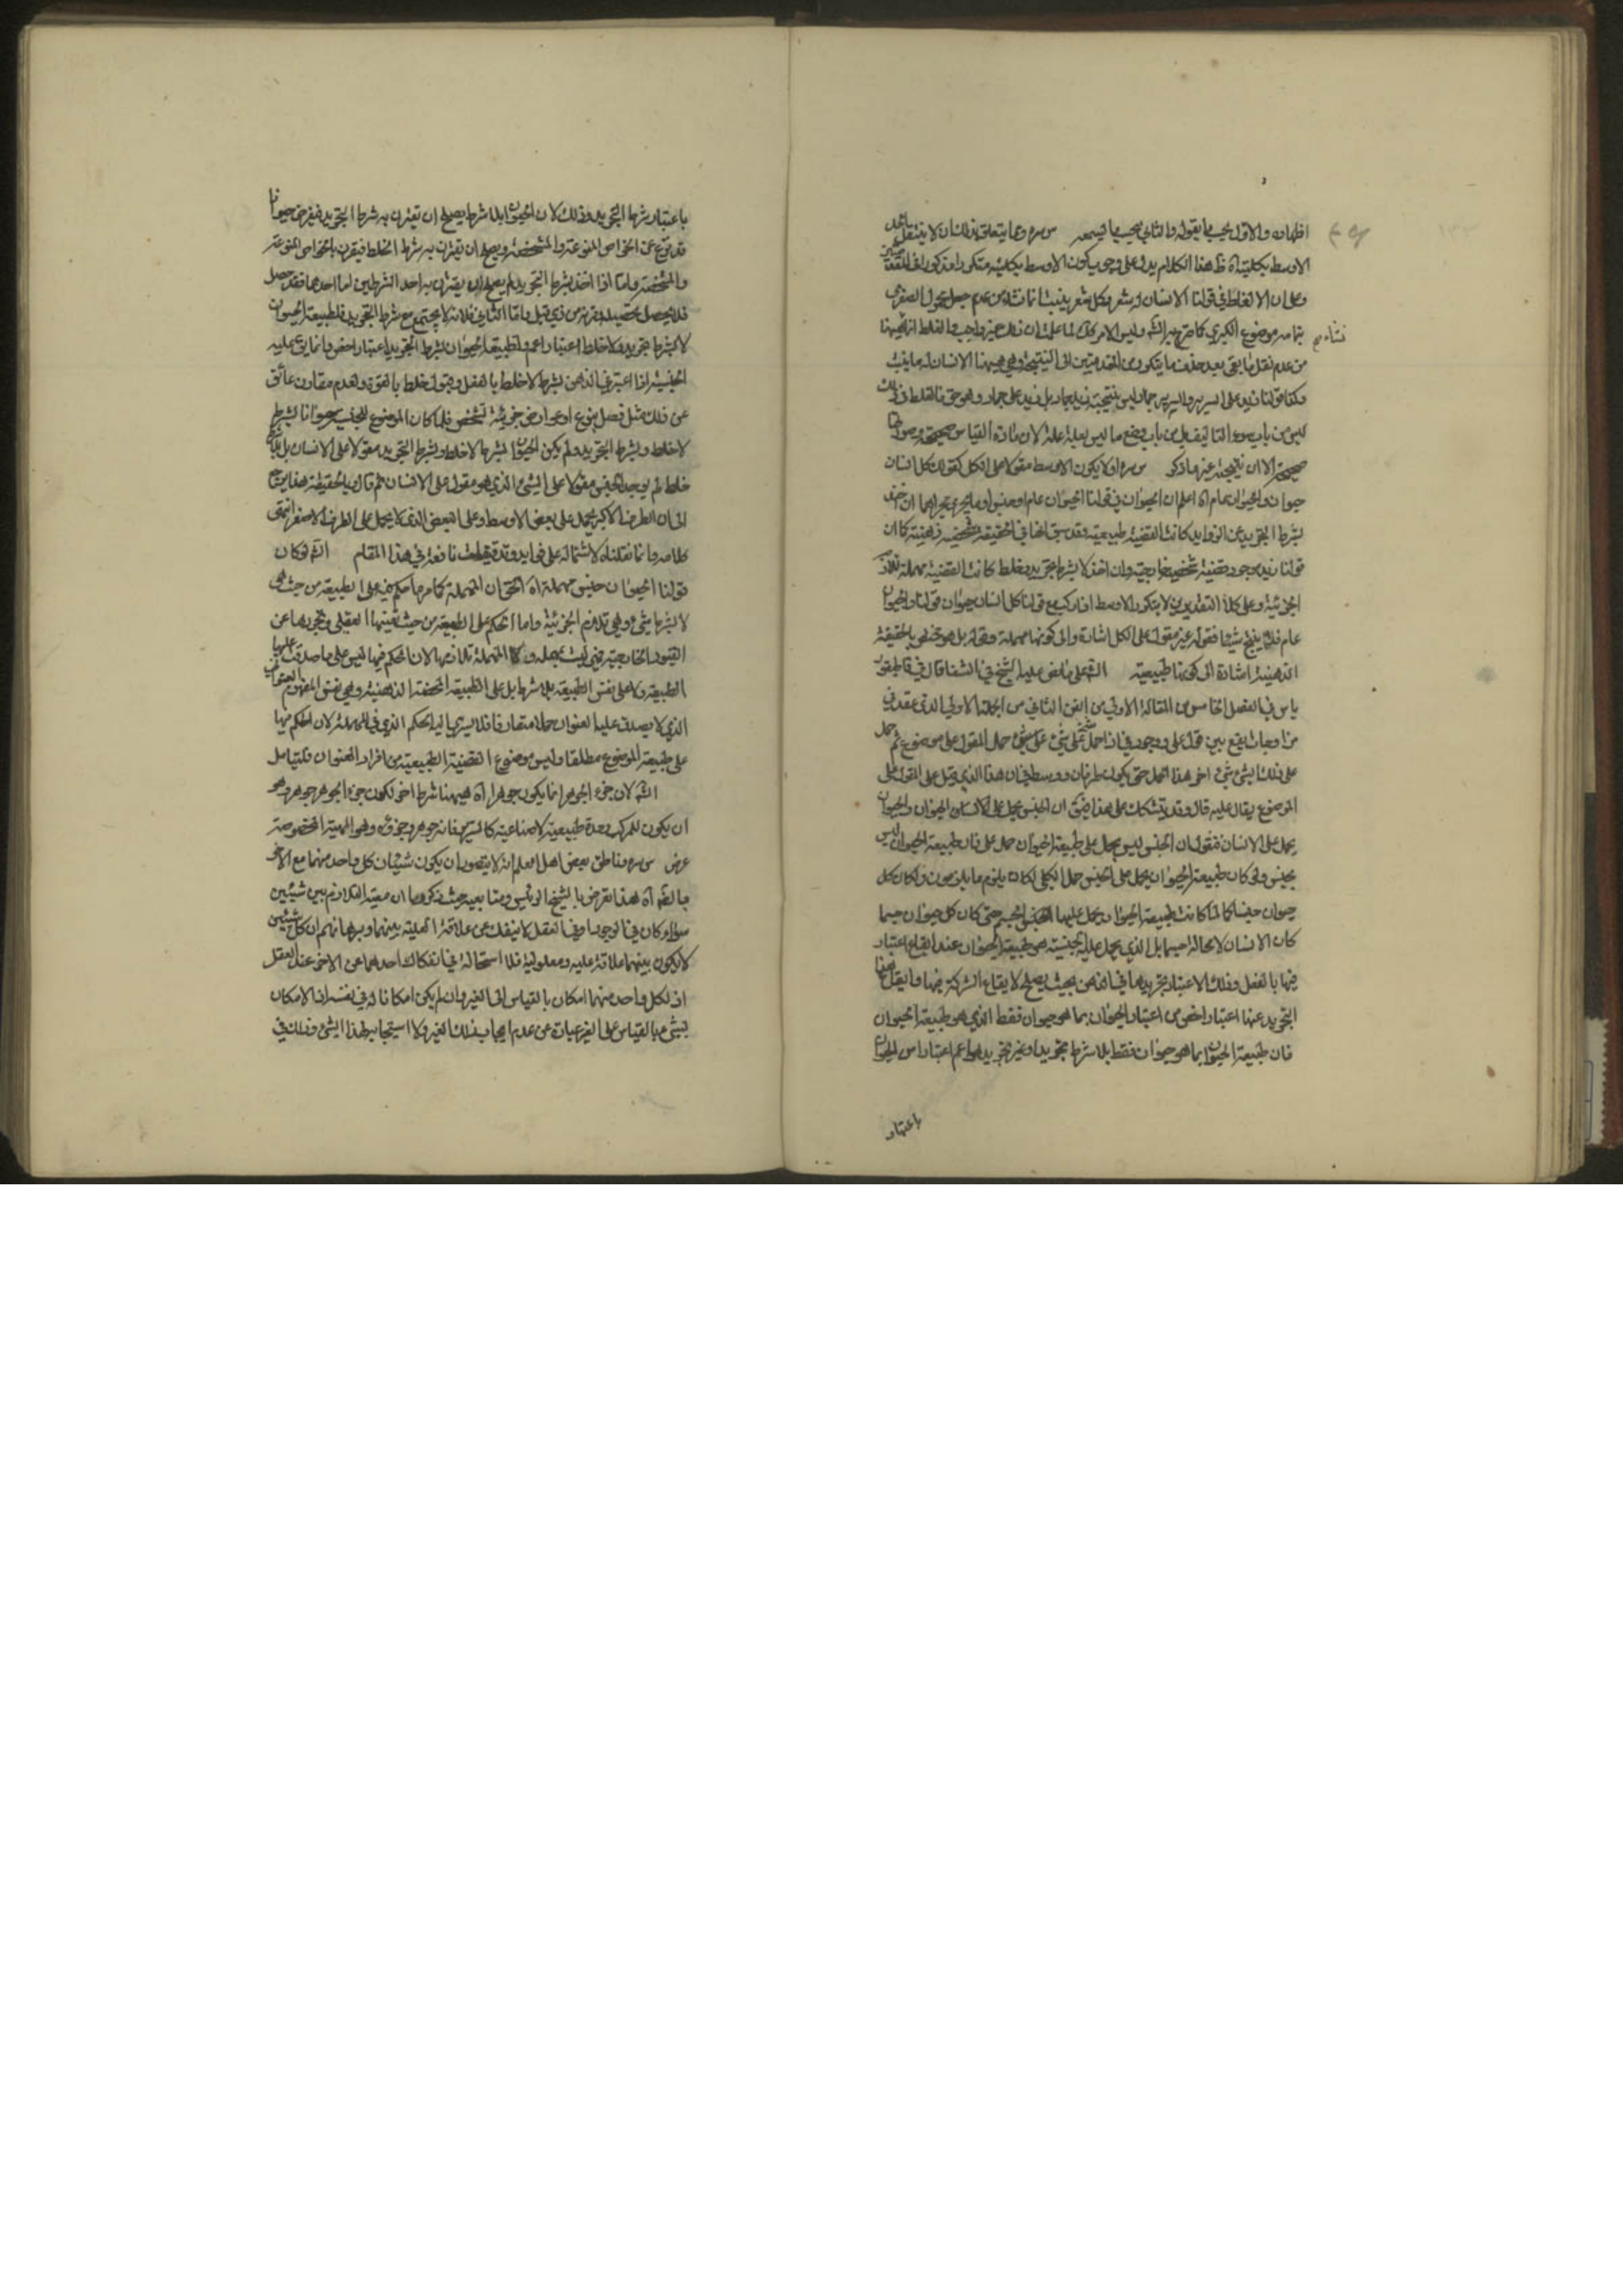 اظهاره والاول بحسب ما يقوله والثاني بحسب ما يسمعه س سره وعما يتعلق بذلك ان لا ينتقل الحد
الاوسط بكليته اه ظ هذا الكلام يدل على وجوب كون الاوسط بكليته متكررا مذكورا في المقدمتين
وعلى ان الاغلاط في قولنا الانسان له شعر وكل شعر ينبت انما نشاء من عدم جعل محمول الصغرى
بتمامه موضوع الكبرى كما صرح به الش وليس الامر كذلك لما علمت ان ذلك غير واجب والغلط انما هيهنا
من عدم نقل ما بقي بعد حذف ما يتكرر من المقدمتين الى النتيجة وهي هيهنا الانسان له ما ينبت
وكذا قولنا زيد على السرير والسرير جماد ليس نتيجته زيد جماد بل زيد على جماد وهو حق فالغلط في ذلك
ليس من باب سوء التاليف بل من باب وضع ما ليس بعلة علة لان مادة القياس صحيحة وصورتها
صحيحة الا ان نتيجته غير ما ذكر س سره او لا يكون الاوسط مقولا على الكل كقولك كل انسان
حيوان والحيوان عام اه اعلم ان الحيوان في قولنا الحيوان عام او جنس او ما يجري مجراهما ان اخذ
بشرط التجريد عن الزوايد كانت القضية طبيعية وقد سبق انها في الحقيقة شخصية ذهنية كما ان
قولنا زيد موجود قضية شخصية خارجية وان اخذ لا بشرط تجريد وخلط كانت القضية مهملة تلازم
الجزئية وعلى كلا التقديرين لا يتكرر الاوسط اذا ركب مع قولنا كل انسان حيوان قولنا والحيوان
عام فلا ينتج شيئا فقوله غير مقول على الكل اشارة الى كونها مهملة وقوله بل هو شخصي بالحقيقة
الذهنية اشارة الى كونها طبيعية الش على ما نص عليه الشيخ في الشفا قال في قاطيغور
ياس في الفصل الخامس من المقالة الاولى من الفن الثاني من الجملة الاولى الذي عقده في
مزاوجات تقع بين قول على ووجود في اذا حمل شيء على شيء حمل المقول على موضوع ثم حمل
على ذلك الشيء شيء اخر هذا الحمل حتى يكون طرفان ووسط فان هذا الذي قيل على المقول على
الموضوع يقال عليه قال وقد يتشكك على هذا فيق ان الجنس يحمل على الحيوان والحيوان
يحمل على الانسان فنقول ان الجنس ليس يحمل على طبيعة الحيوان حمل على فان طبيعة الحيوان ليس
بجنس ولو كان طبيعة الحيوان يحمل على الجنس حمل الكلي لكان يلزم ما يلزمون ولكان كل
حيوان جنسا كما لما كانت طبيعة الحيوان يحمل عليها الجسم حتى كان كل حيوان جسما
كان الانسان لا محالة جسما بل الذي يحمل عليه الجنسية هو طبيعة الحيوان عند ايقاع اعتبار
فيها بالفعل وذلك الاعتبار تجريدها في الذهن بحيث يصلح لايقاع الشركة فيها وايقاع هذا
التجريد عنها اعتبار اخص من اعتبار الحيوان بما هو حيوان فقط الذي هو طبيعة الحيوان
فان طبيعة الحيوان بما هو حيوان فقط بلا شرط تجريد او غير تجريد هو اعم اعتبارا من الحيوان
باعتبار
باعتبار شرط التجريد وذلك لان الحيوان بلا شرط يصلح ان يقترن به شرط التجريد فيفرض حيوانا
قد نزع عن الخواص المنوعة والمشخصة ويصلح ان يقترن به شرط الخلط فيقرن بالخواص المنوعة
والمشخصة واما اذا اخذ بشرط التجريد لم يصلح ان يقترن به احد الشرطين اما احدهما فقد حصل
فلا يحصل تحصيله وقرنه من ذي قبل واما الثاني فلانه لا يجتمع مع شرط التجريد فلطبيعة الحيوان
لا بشرط تجريد ولا خلط اعتبار اعم ولطبيعة الحيوان بشرط التجريد اعتبار اخص وانما يقع عليه
الجنسية اذا اعتبر في الذهن بشرط لا خلط بالفعل وقبول خلط بالقوة ولعدم مقارن عائق
عن ذلك مثل فصل ينوع او عوارض جزئية تشخص فلما كان الموضوع للجنس حيوانا بشرط
لا خلط وبشرط التجريد ولم يكن الحيوان بشرط لا خلط وبشرط التجريد مقولا على الانسان بل بلا شرط
خلط لم يوجد الجنس مقولا على الشيء الذي هو مقول على الانسان ثم قال وبالحقيقة هذا يرجع
الى ان الطرف الاكبر يحمل على بعض الاوسط وعلى البعض الذي لا يحمل على الطرف الاصغر انتهى
كلامه وانما نقلناه لاشتماله على فوايد وتدقيقات نافعة في هذا المقام الش فكان
قولنا الحيوان جنس مهملة اه الحق ان المهملة كما مر ما حكم فيه على الطبيعة من حيث هي
لا بشرط شيء وهي تلازم الجزئية واما الحكم على الطبيعة من حيث تعينها العقلي وتجردها عن
القيود الخارجية فهي ليست مهملة ولا المهملة تلازمها لان الحكم فيها ليس على ما صدقت عليها
الطبيعة ولا على نفس الطبيعة بلا شرط بل على الطبيعة المحضة الذهنية وهي نفس المفهوم العنوان
الذي لا يصدق عليه العنوان حملا متعارفا فلا يسري اليه الحكم الذي في المهملة لان الحكم فيها
على طبيعة الموضوع مطلقا وليس موضوع القضية الطبيعية من افراد العنوان فليتامل
الش لان جزء الجوهر انما يكون جوهرا اه هيهنا شرط اخر لكون جزء الجوهر جوهرا وهو
ان يكون للمركب وحدة طبيعية لا صناعية كالسرير فانه جوهر وجزؤه وهو الهيئة المخصوصة
عرض س سره وناطق بعض اهل العلم انه لا يتصور ان يكون شيئان كل واحد منهما مع الاخر
بالضرورة اه هذا تعرض بالشيخ الرئيس ومتابعيه حيث ذكروا ان معية التلازم بين شيئين
سواء كان في الوجود او في العقل لا ينفك عن علاقة العلية بينهما وبرهانهم ان كل شيئين
لا يكون بينهما علاقة علية ومعلولية فلا استحالة في انفكاك احدهما عن الاخر عند العقل
اذ لكل واحد منهما امكان بالقياس الى الغير وان لم يكن امكانا له في نفسه اذ الامكان
لشيء بالقياس الى الغير عبارة عن عدم ايجاب ذلك الغير ولا استيجابه لهذا الشيء وذلك في